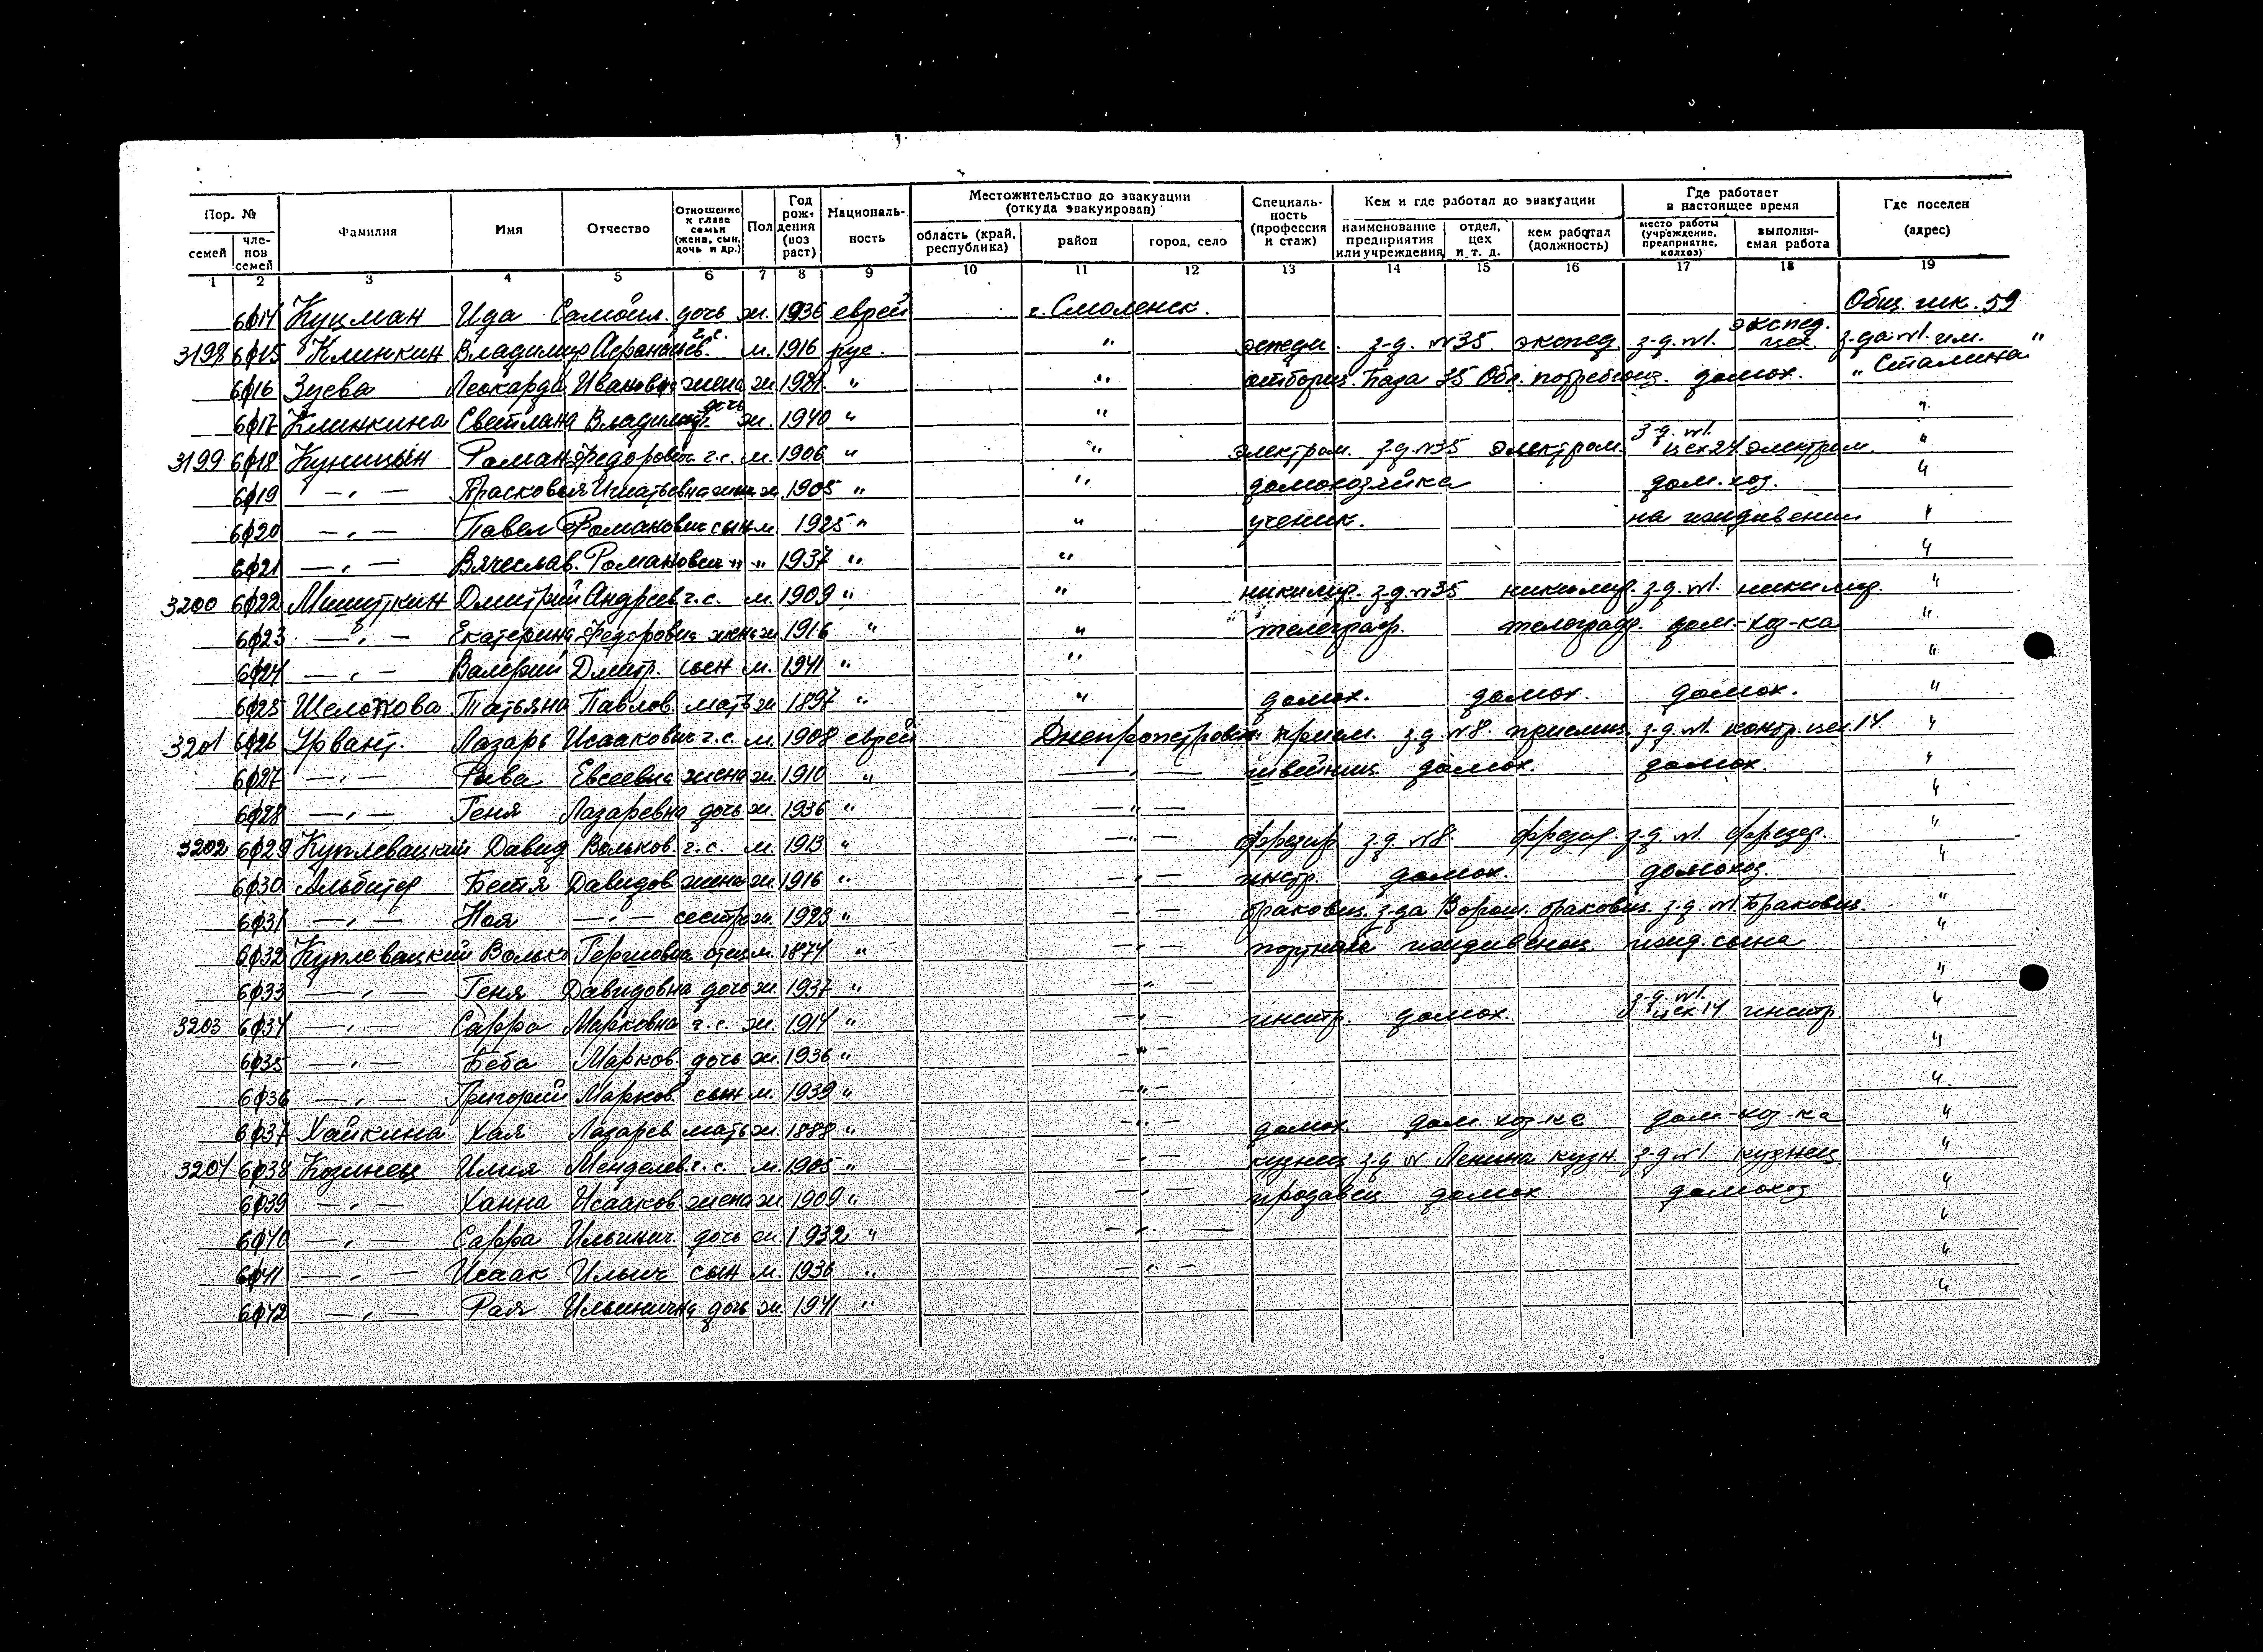 Пор. № Фамилия Имя Отчество Отношение к главе семьи (жена, сын, дочь и др.) Пол Год рождения (возраст) Национальность Местожительство до эвакуации (откуда эвакуирован) Специальность (профессия и стаж) Кем и где работал до эвакуации Где работает в настоящее время Где поселен (адрес)
семей членов семей область (край, республика) район город, село наименование предприятия или учреждения отдел, цех и т. д. кем работал (должность) место работы (учреждение, предприятие, колхоз) выполняемая работа
1 2 3 4 5 6 7 8 9 10 11 12 13 14 15 16 17 18 19
6014 Куцман Ида Самойл. дочь ж. 1936 еврей г. Смоленск. Общ. шк. 59
3198 6015 Клинкин Владимир г.с. м. 1916 рус. " з-д. №35. экспед. з-д. №1. экспед. цех. з-да №1. им. "
6016 Зуева Леокарда Ивановна жена ж " " База 35 Обл. домох. " Сталина
6017 Клинкина Светлана Владимир. дочь ж. 1940 " " "
3199 6018 Куницын Роман Федорович г.с. м. 1906 " " электром. з-д. №35 электром. з-д. №1. цех 24 электром. "
6019 — " — Прасковья Игнатьевна жена ж. 1905 " " домохозяйка дом. хоз. "
6020 — " — Павел Романович сын м. 1925 " " ученик. на иждивении "
6021 — " — Вячеслав. Романович " " 1937 " " "
3200 6022 Мишуткин Дмитрий Андреев. г.с. м. 1909 " " никилир. з-д. №35 никилир. з-д. №1. "
6023 — " — Екатерина Федоровна жена ж 1916 " " телеграф. телеграф. дом-хоз-ка "
6024 — " — Валерий Дмитр. сын м. 1941 " " "
6025 Щелокова Татьяна Павлов. мать ж 1897 " " домох. домох. домох. "
3201 6026 Урвант. Лазарь Исаакович г.с. м. 1908 еврей Днепропетровск прием. з-д. №8. приемщ. з-д. №1. контр. цех. 14. "
6027 — " — Рива Евсеевна жена ж. 1910 " — " — швейниц. домох. домох. "
6028 — " — Геня Лазаревна дочь ж. 1936 " — " — "
3202 6029 Куплевацкий Давид Вольков. г.с. м. 1913 " — " — фрезер з-д. №8. фрезер. з-д. №1. фрезер. "
6030 Альбитер Бетя Давидов жена ж. 1916 " — " — инстр. домох. домохоз. "
6031 — " — Ноя — " — сестра ж. 1923 " — " — браковщ. з-да Ворош. браковщ. з-д. №1. браковщ. "
6032 Куплевацкий Волько отец м. 1874 " — " — портной иждивенец ижд. сына "
6033 — " — Геня Давидовна дочь ж. 1937 " — " — "
3203 6034 — " — Сарра Марковна г.с. ж. 1914 " — " — инстр. домох. з-д. №1. цех 14 инстр. "
6035 — " — Беба Марков. дочь ж. 1936 " — " — "
6036 — " — Григорий Марков сын м. 1939 " — " — "
6037 Хайкина Хая Лазарев. мать ж. 1888 " — " — домох. дом. хоз-ка дом-хоз-ка "
3204 6038 Козинец Илия Менделев. г.с. м. 1905 " — " — кузнец з-д № Ленина кузн. з-д №1. кузнец "
6039 — " — Ханна Исааков. жена ж. 1909 " — " — продавец домох. домохоз "
6040 — " — Сарра Ильинич. дочь ж. 1932 " — " — "
6041 — " — Исаак Ильич сын м. 1936 " — " — "
6042 — " — Рая Ильинична дочь ж. 1941 " "